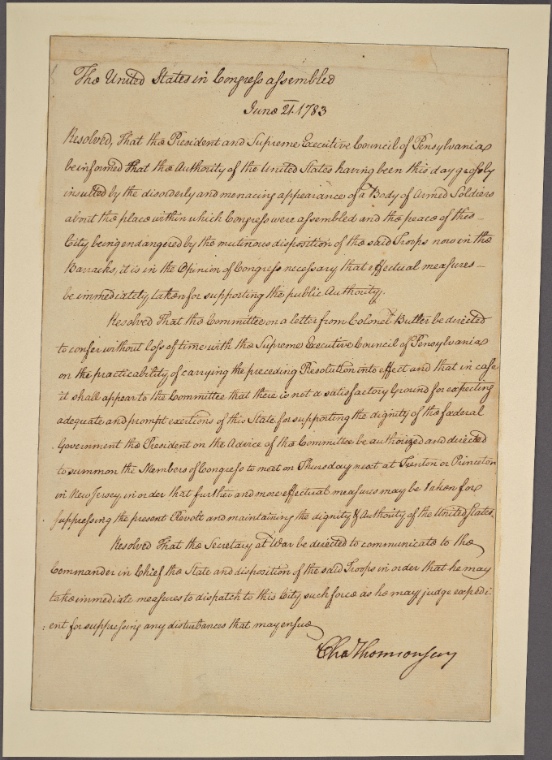 The United States in Congress assembled
June 21. 1783
Resolved, That the President and Supreme Executive Council of Pensylvania
be informed that the Authority of the United States having been this day grossly
insulted by the disorderly and menacing appearance of a Body of Armed Soldiers
about the place within which Congress were assembled and the peace of this
City being endangered by the mutinous disposition of the said Troops now in the
Barracks, it is in the Opinion of Congress necessary that effectual measures
be immediately taken for supporting the public Authority.
Resolved That the Committee on a letter from Colonel Butler be directed
to confer without loss of time with the Supreme Executive Council of Pensylvania
on the practicability of carrying the preceding Resolution into effect and that in case
it shall appear to the Committee that there is not a satisfactory Ground for expecting
adequate and prompt exertions of this State for supporting the dignity of the federal
Government the President on the Advice of the Committee be authorized and directed
to summon the Members of Congress to meet on Thursday next at Trenton or Princeton
in New Jersey, in order that further and more effectual measures may be taken for
suppressing the present Revolt and maintaining the dignity & Authority of the United States.
Resolved That the Secretary at War be directed to communicate to the
Commander in Chief the State and disposition of the said Troops in order that he may
take immediate measures to dispatch to this City such force as he may judge expedi
ent for suppressing any disturbances that may ensue
Cha Thomson Secy